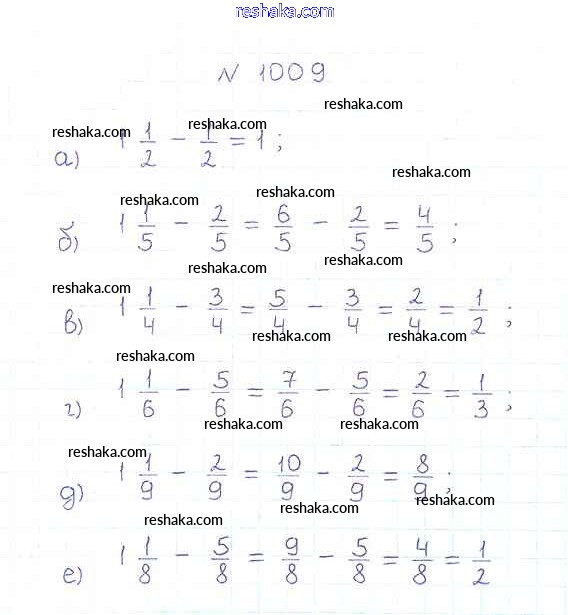 reshaka.com
№ 1009
reshaka.com
reshaka.com reshaka.com
а) 1 1/2 - 1/2 = 1;
reshaka.com
reshaka.com reshaka.com
б) 1 1/5 - 2/5 = 6/5 - 2/5 = 4/5;
reshaka.com reshaka.com
reshaka.com
в) 1 1/4 - 3/4 = 5/4 - 3/4 = 2/4 = 1/2;
reshaka.com reshaka.com
reshaka.com
г) 1 1/6 - 5/6 = 7/6 - 5/6 = 2/6 = 1/3;
reshaka.com reshaka.com
reshaka.com
д) 1 1/9 - 2/9 = 10/9 - 2/9 = 8/9;
reshaka.com reshaka.com
reshaka.com
е) 1 1/8 - 5/8 = 9/8 - 5/8 = 4/8 = 1/2